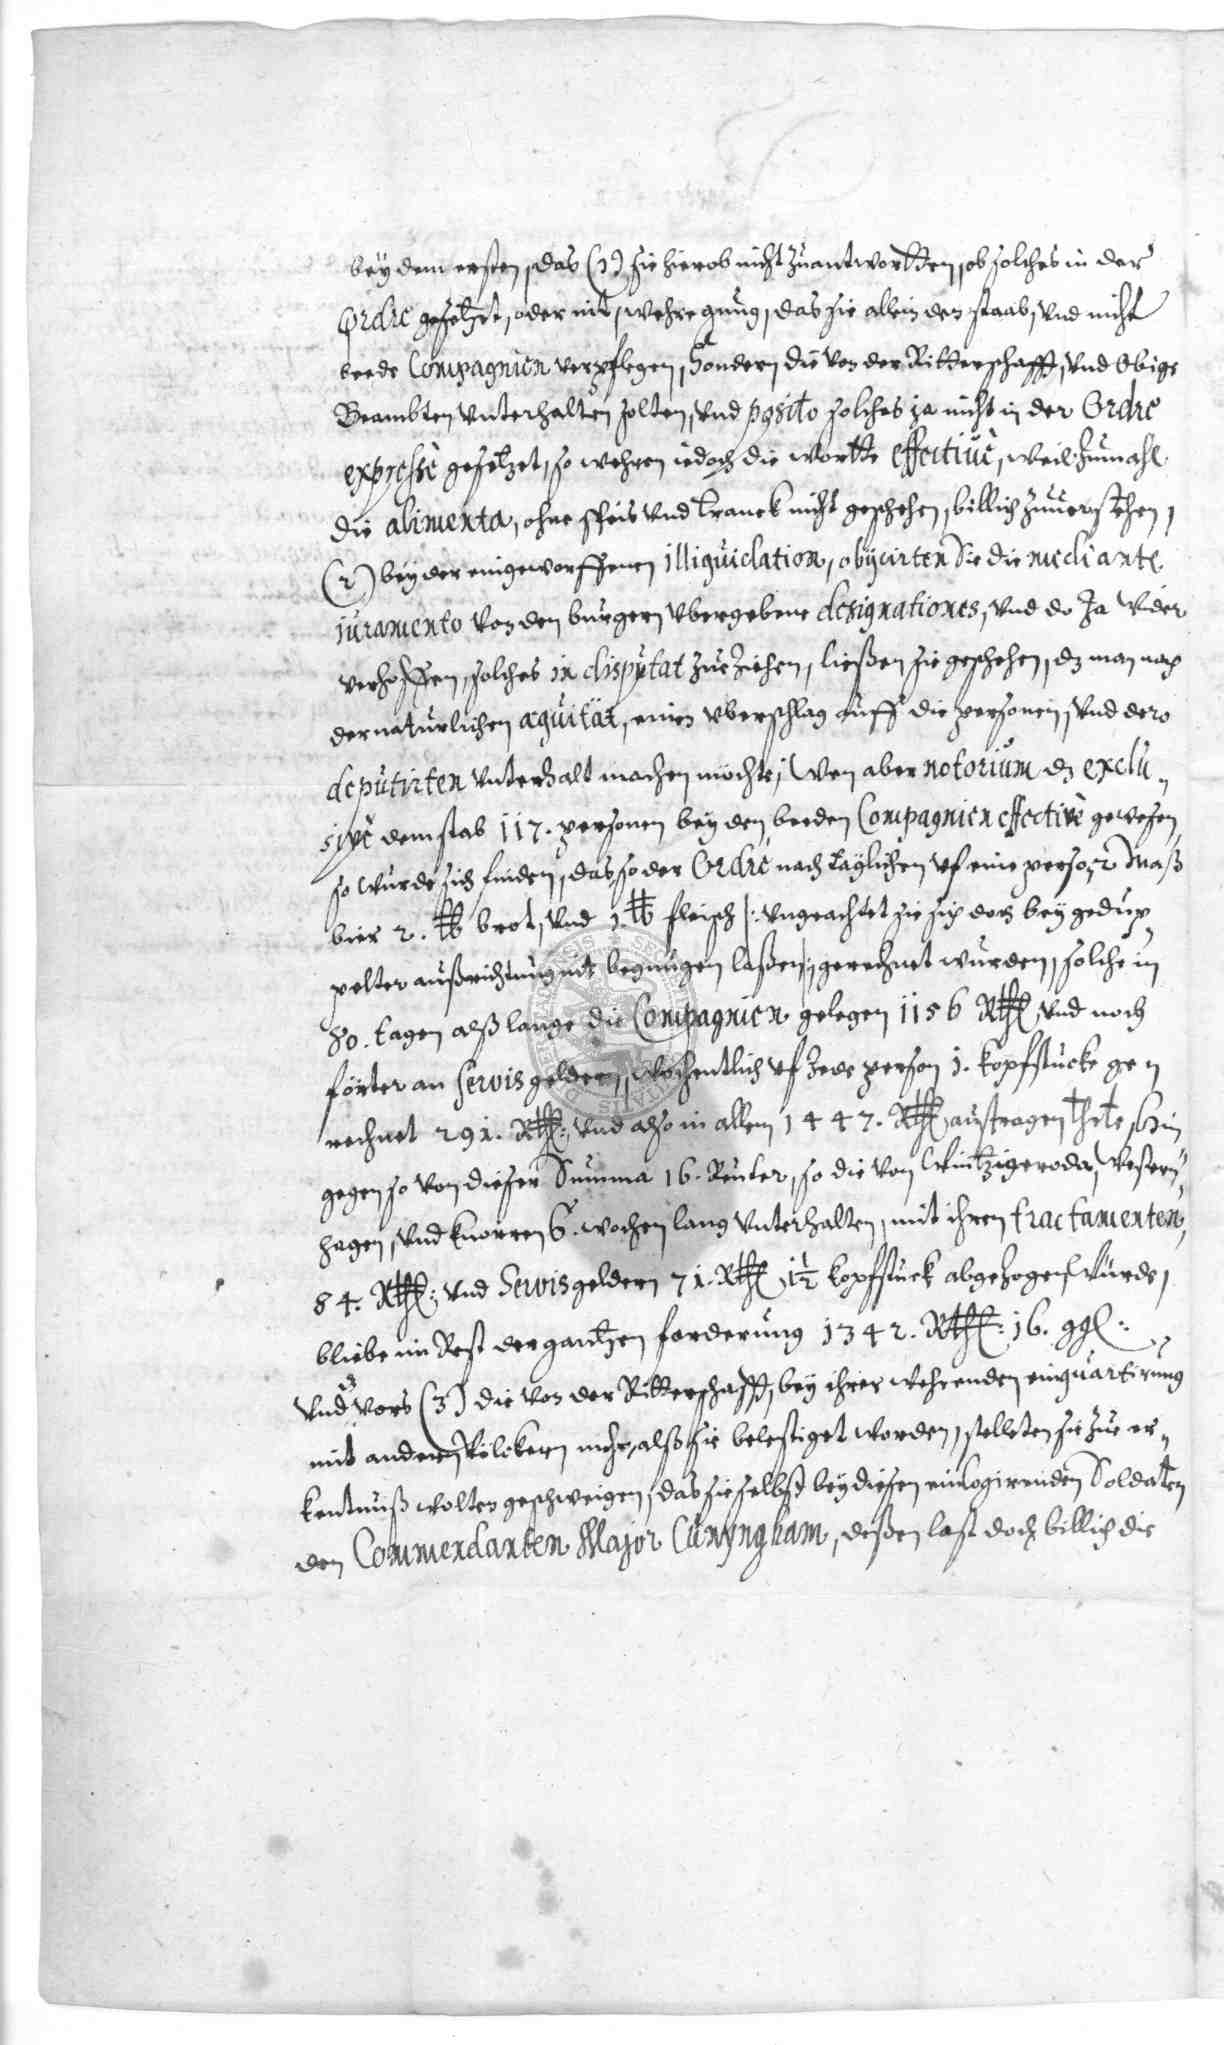 bey dem ersten, das (1) sie hierob nicht zuantwortten, ob solches in der
Ordre gesetzet, oder nit, wehre gnug, das sie allein den staab, vnd nicht
beede Compagnien verpflegen, Sondern die von der Ritterschafft, vnd Obige
Beambten vnterhalten solten, vnd posito solches ja nicht in der Ordre
expresse gesetzet, so wehren iedoch die wortte effective, weil zumahl
die alimenta, ohne speis vnd tranck nicht geschehen, billich zuuerstehen,
(2) bey der eingeworffenen illiquidation, obijcirten Sie die mediante
juramento von den burgern vbergebene designationes, vnd do Ja wider
verhoffen, solches in disputat zue ziehen, ließen sie geschehen, dz man nach
der naturlichen æquität, einen vberschlag auff die personen, vnd dero
deputirten vnterhalt machen möchte; Wen aber notorium dz exclu-
sive dem stab 117. personen bey den beeden Compagnien effective gewesen,
so wurde sich finden, das, so der Ordre nach täglichen vf eine person 2 Maß
bier 2. ℔ brot, vnd 1. ℔ fleisch |: vngeachtet sie sich doch bey gedup-
pelter außrichtung nit begnugen laßen :| gerechnet wurden, solche in
80. tagen alß lange die Compagnien gelegen 1156 Rthl, vnd noch
förter an Servis geldern, wochentlich vf Jede person 1. kopfstucke ge-
rechnet 291. Rthl:, vnd also in allem 1447. Rthl austragen thete, hin
gegen so von dieser Summa 16. Reuter, so die von Wintzigeroda, Western-
hagen, vnd Knorren 6. wochen lang vnterhalten, mit ihren tractamenten,
84. Rthl: vnd Servis geldern 71. Rthl 1½ kopfstuck abgezogen Würde,
bliebe im Rest der gantzen forderung 1342. Rthl: 16. ggl:
Vnd vors (3) die von der Ritterschafft, bey ihrer wehrenden einquartirung
mit anderen Völckern mehr, alß sie belestiget worden, stelleten sie zue er-
kentnuß wolten geschweigen, das sie selbst bey diesen einlogirenden Soldaten
den Commendanten Major Cunyngham, deßen last doch billich die